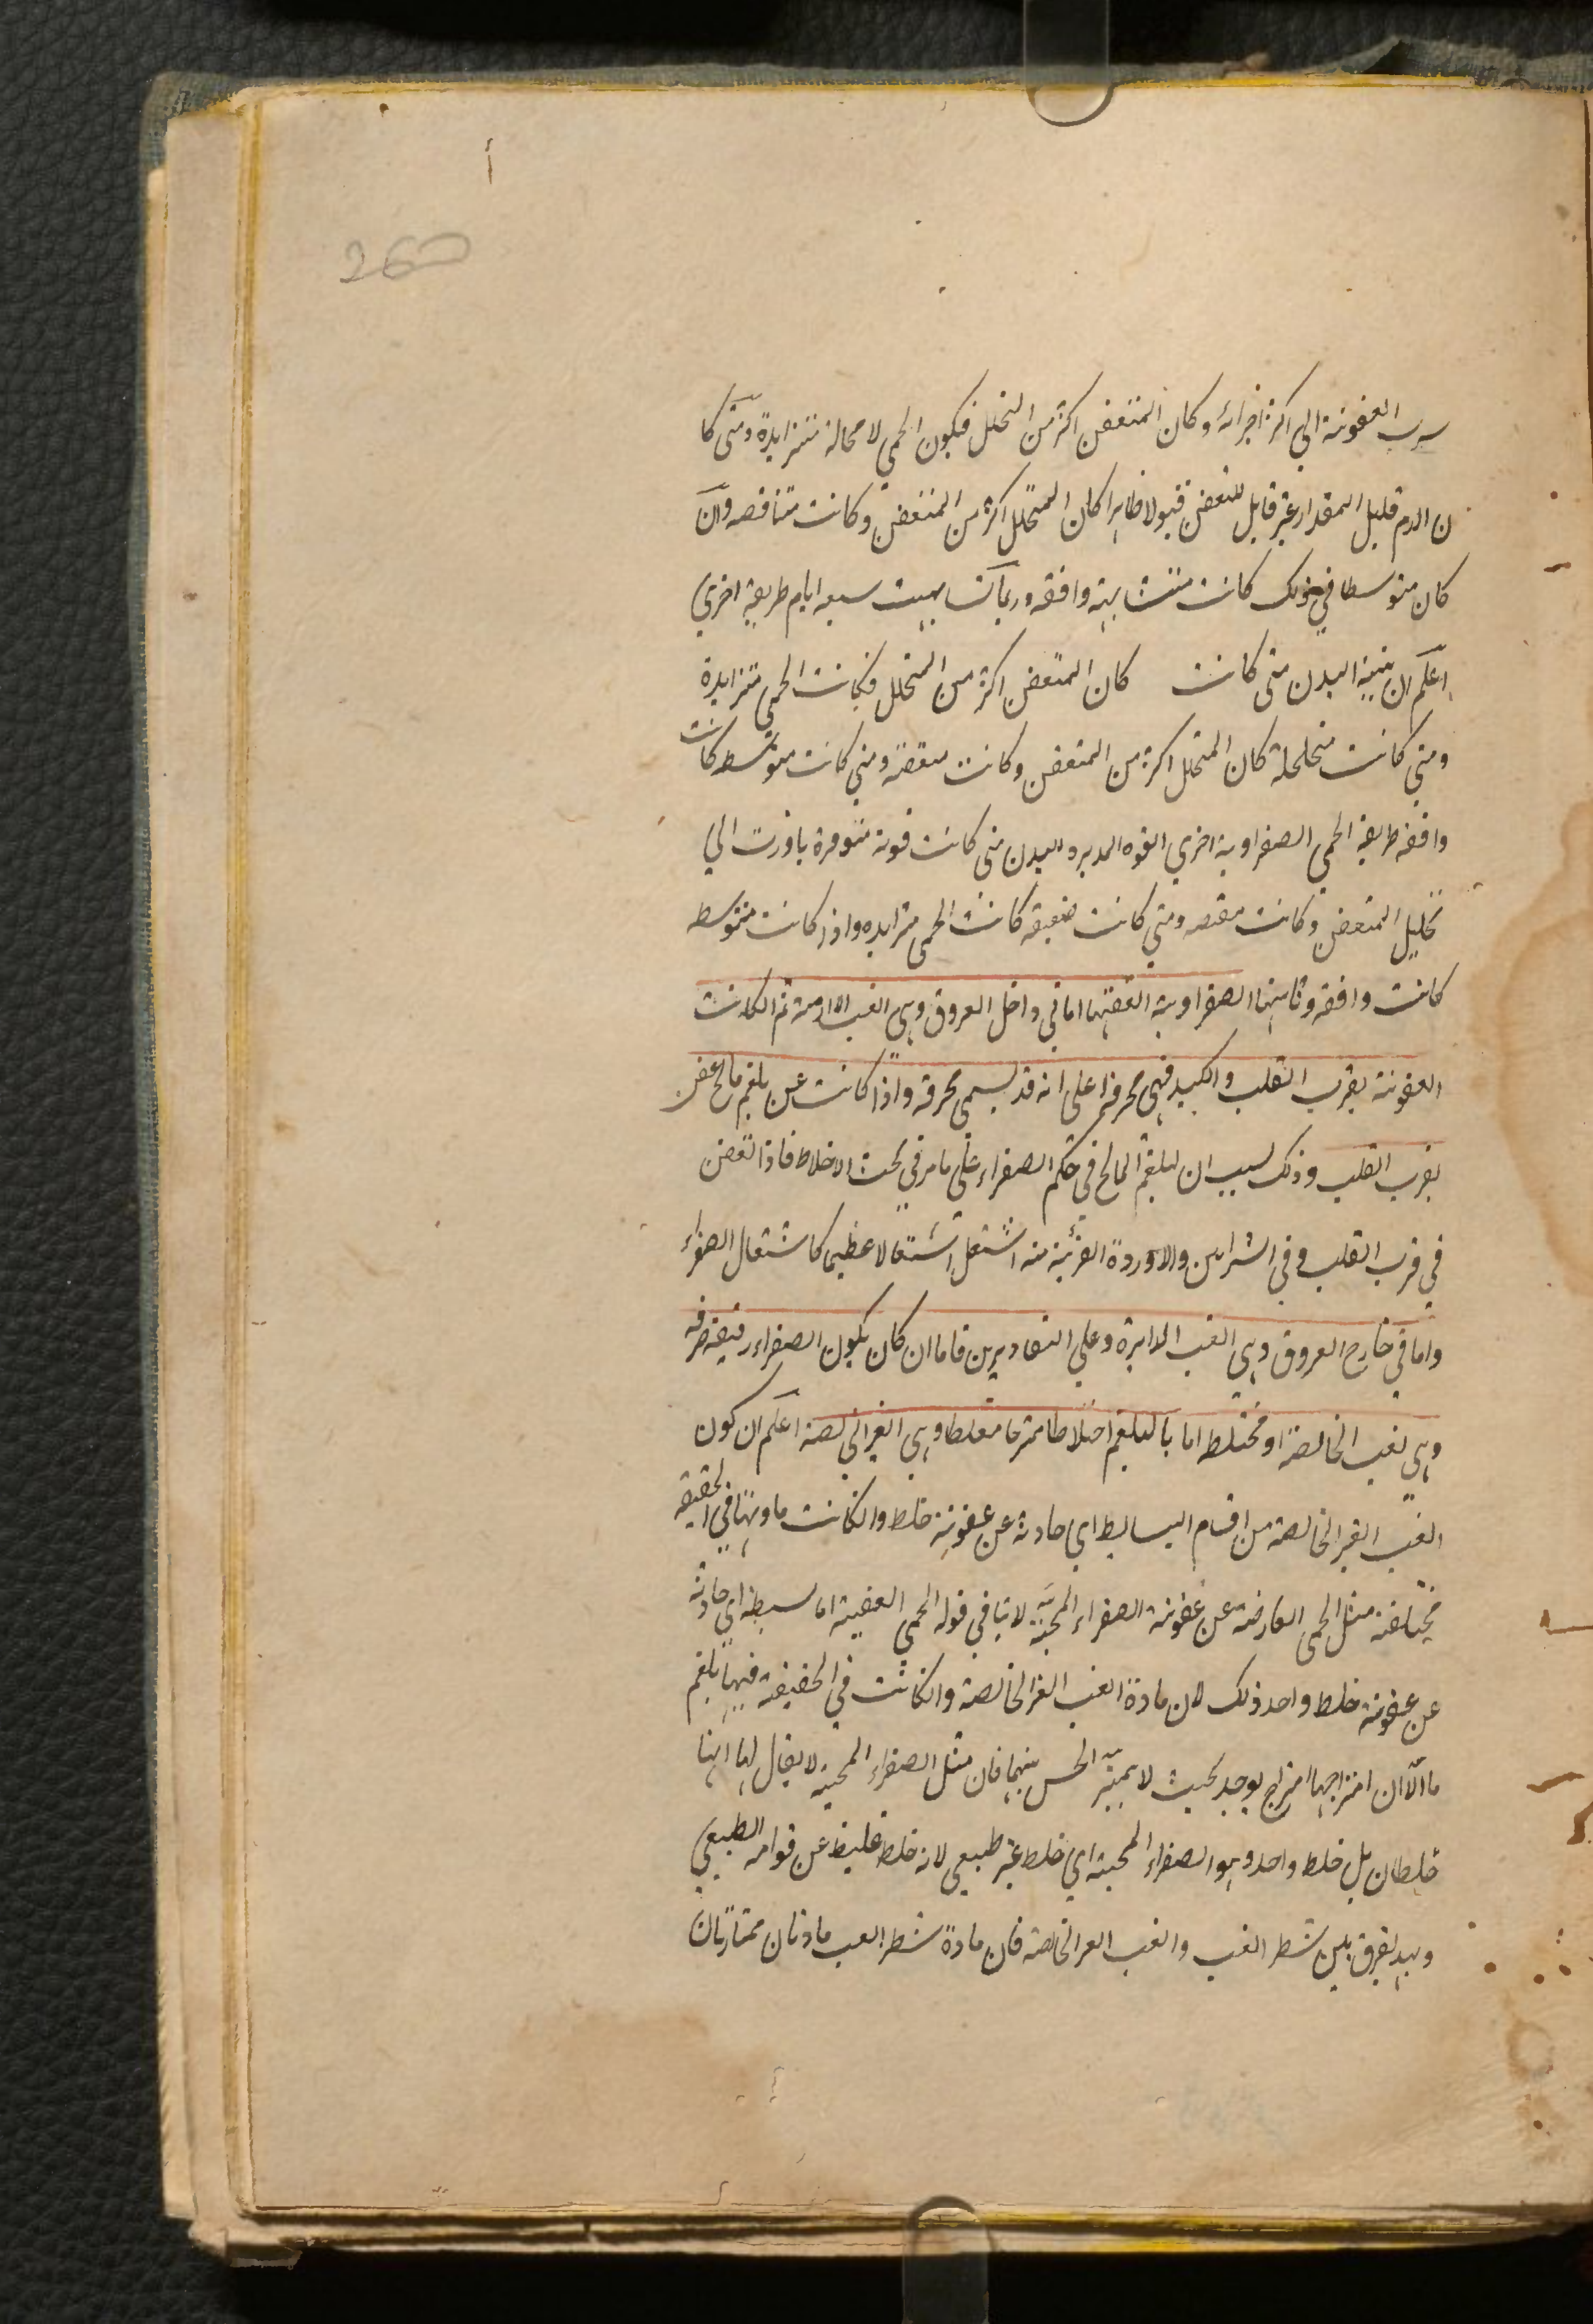 260
العفونة الى اكثر اجزائه وكان المتعفن اكثر من التحلل فيكون الحمى لا محالة متزايدة ومتى كا
ن الدم قليل المقدار غير قابل للتعفن قبولا ظاهرا كان المتحلل اكثر من المتعفن وكانت متناقصه وان
كان متوسطا في ذلك كانت متشابهة واقفه وربما سبعه ايام طريقة اخرى
اعلم ان بنية البدن متى كانت كان المتعفن اكثر من المتحلل فكانت الحمى متزايدة
ومتى كانت متخلخلة كان المتحلل اكثر من المتعفن وكانت منقصة ومتى كانت متوسط كانت
واقفة طريقة الحمى الصفراوية اخرى القوه المدبره البدن متى كانت قوية متوفرة بادرت الى
تحليل المتعفن وكانت منقصه ومتى كانت ضعيفه كانت الحمى متزايده واذا كانت متوسط
كانت واقفه وثانيتها الصفراوية العفنتها اما في داخل العروق وهى الغب اللازمة ثم الكانت
العفونة بقرب القلب والكبد فهى محرقة اعلى انه قد يسمى محرقه واذا كانت عن بلغم مالح عفن
بقرب القلب وذلك لسبب ان البلغم المالح في حكم الصفراء على ما مر في بحث الاخلاط فاذا تعفن
في قرب القلب وفي الشرايين والاوردة القريبة منه اشتعل اشتعالا عظيما كاشتعال الصفراء
واما في خارج العروق وهى الغب الدايرة وعلى التقاديرين فاما ان كان يكون الصفراء رقيقه صرفه
وهى لغب الخالصة او مختلط اما بالبلغم اختلاطا ممتزجا مغلطا وهى الغير الخالصة اعلم ان كون
الغب الغير الخالصة من اقسام البسايط اى حادثة عن عفونة خلط وانكانت مادتها في الحقيقه
مختلفة مثل الحمى العارضة عن عفونة الصفراء المحية لا تنافي قوله الحمى العفنية اما بسيطة اى حادثة
عن عفونة خلط واحد ذلك لان مادة الغب الغير الخالصة وانكانت في الحقيقة فيها بلغم
ما الا ان امتزاجها امتزاج يوجد بحيث لا يميز الحس بينهما فان مثل الصفراء المحية لا يقال لها انها
خلطان بل خلط واحد وهو الصفراء المحية اى خلط غير طبيعى لانه خلط غليظ عن قوامه الطبيعى
وبهذا يفرق بين شطر الغب والغب الغير الخالصة فان مادة شطر الغب مادتان ممتازتان